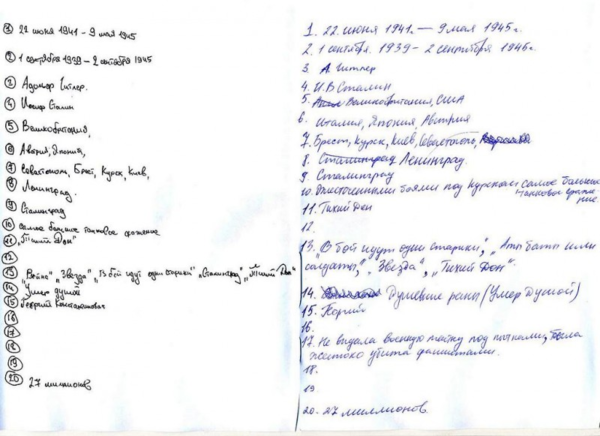 ① 22 июня 1941 - 9 мая 1945
② 1 сентября 1939 - 2 сентября 1945
③ Адольф Гитлер.
④ Иосиф Сталин
⑤ Великобритания,
⑥ Япония,
⑦ Севастополь, Брест, Курск, Киев,
⑧ Ленинград.
⑨ Сталинград
⑩ самое большое танковое сражение
⑪ "Тихий Дон"
⑫
⑬ Война", "Звезда", "В бой идут одни старики", "Сталинград", "Тихий Дон"
⑭ "Умер душой
⑮ Георгий Константинович
⑯
⑰
⑱
⑲
⑳ 27 миллионов
1. 22 июня 1941г. — 9 мая 1945г.
2. 1 сентября 1939 - 2 сентября 1945г.
3. А. Гитлер
4. И.В Сталин
5. Великобритания, США
6. Италия, Япония, Австрия
7. Брест, Курск, Киев, Севастополь,
8. Сталинград Ленинград.
9. Сталинград
10. Ожесточенными боями под Курском самое большое
танковое сраже
ние.
11. Тихий Дон
12.
13. "В бой идут одни старики", "Аты баты шли
солдаты", "Звезда", "Тихий Дон".
14. Душевные раны (Умер Душой)
15.
16.
17. Не выдала военную тайну под пытками, была
жестоко убита фашистами.
18.
19
20. 27 миллионов